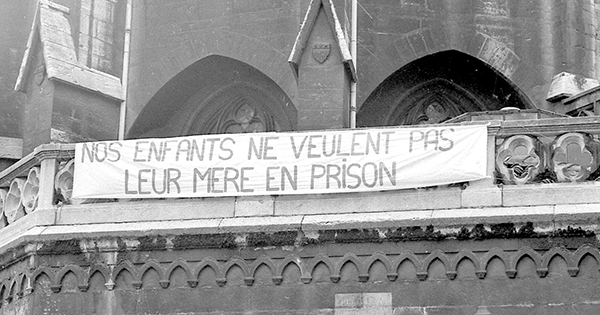 NOS ENFANTS NE VEULENT PAS
LEUR MERE EN PRISON